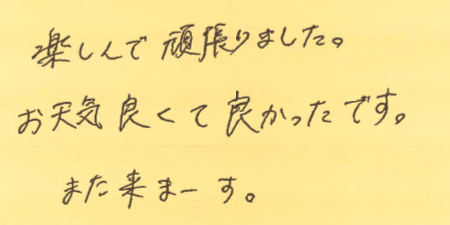 楽しんで頑張りました。
お天気良くて良かったです。
また来まーす。